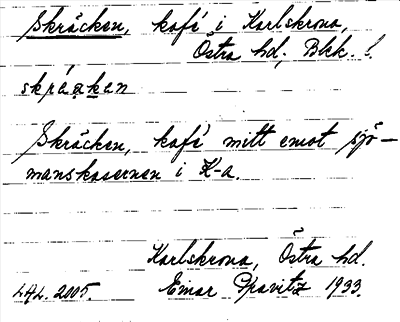 Skräcken, kafé i Karlskrona,
Östra hd, Blek. l.
skräcken
Skräcken, kafé mitt emot sjö-
manskasernen i K-a.
Karlskrona, Östra hd.
LAL. 2005. Einar Kravitz 1933.